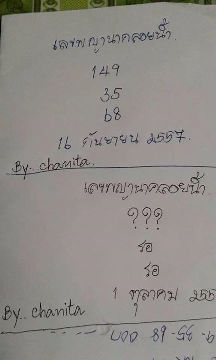 เลขพญานาคลอยน้ำ
149
35
68
16 กันยายน 2557.
By.. chanita.
เลขพญานาคลอยน้ำ
???
รอ
รอ
1 ตุลาคม 255
By.. chanita
บวช 89-58-6